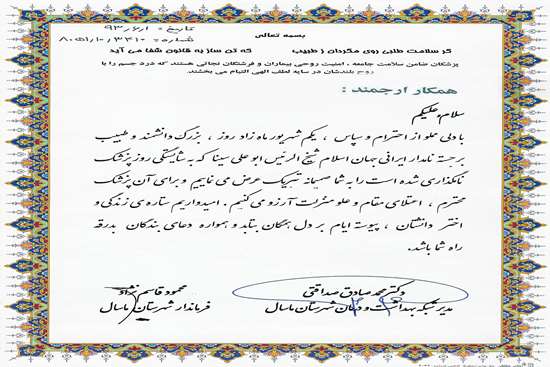 بسمه تعالی
تاریخ: ۹۳/۶/۱
شماره: ۸۰۵۱/۱۰/۳۳۱۰
گر سلامت طلبی روی مگردان ز طبیب که تن ساز به قانون شفا می آید
پزشکان ضامن سلامت جامعه ، امنیت روحی بیماران و فرشتگان نجاتی هستند که درد جسم را با
روح بلندشان در سایه لطف الهی التیام می بخشند
همکار ارجمند :
سلام علیکم
با دلی مملو از احترام و سپاس ، یکم شهریور ماه زاد روز ، بزرگ دانشمند و طبیب
برجسته نامدار ایرانی جهان اسلام شیخ الرئیس ابوعلی سینا که به شایستگی روز پزشک
نامگذاری شده است را به شما صمیمانه تبریک عرض می نمایم و برای آن پزشک
محترم ، اعتلای مقام و علو منزلت آرزو می کنیم . امیدواریم ستاره ی زندگی و
اختر دانشتان ، پیوسته ایام بر دل همگان بتابد و همواره دعای بندگان بدرقه
راه شما باشد.
دکتر محمد صادق صداقتی
مدیر شبکه بهداشت و درمان شهرستان ماسال
محمود قاسم نژاد
فرماندار شهرستان ماسال